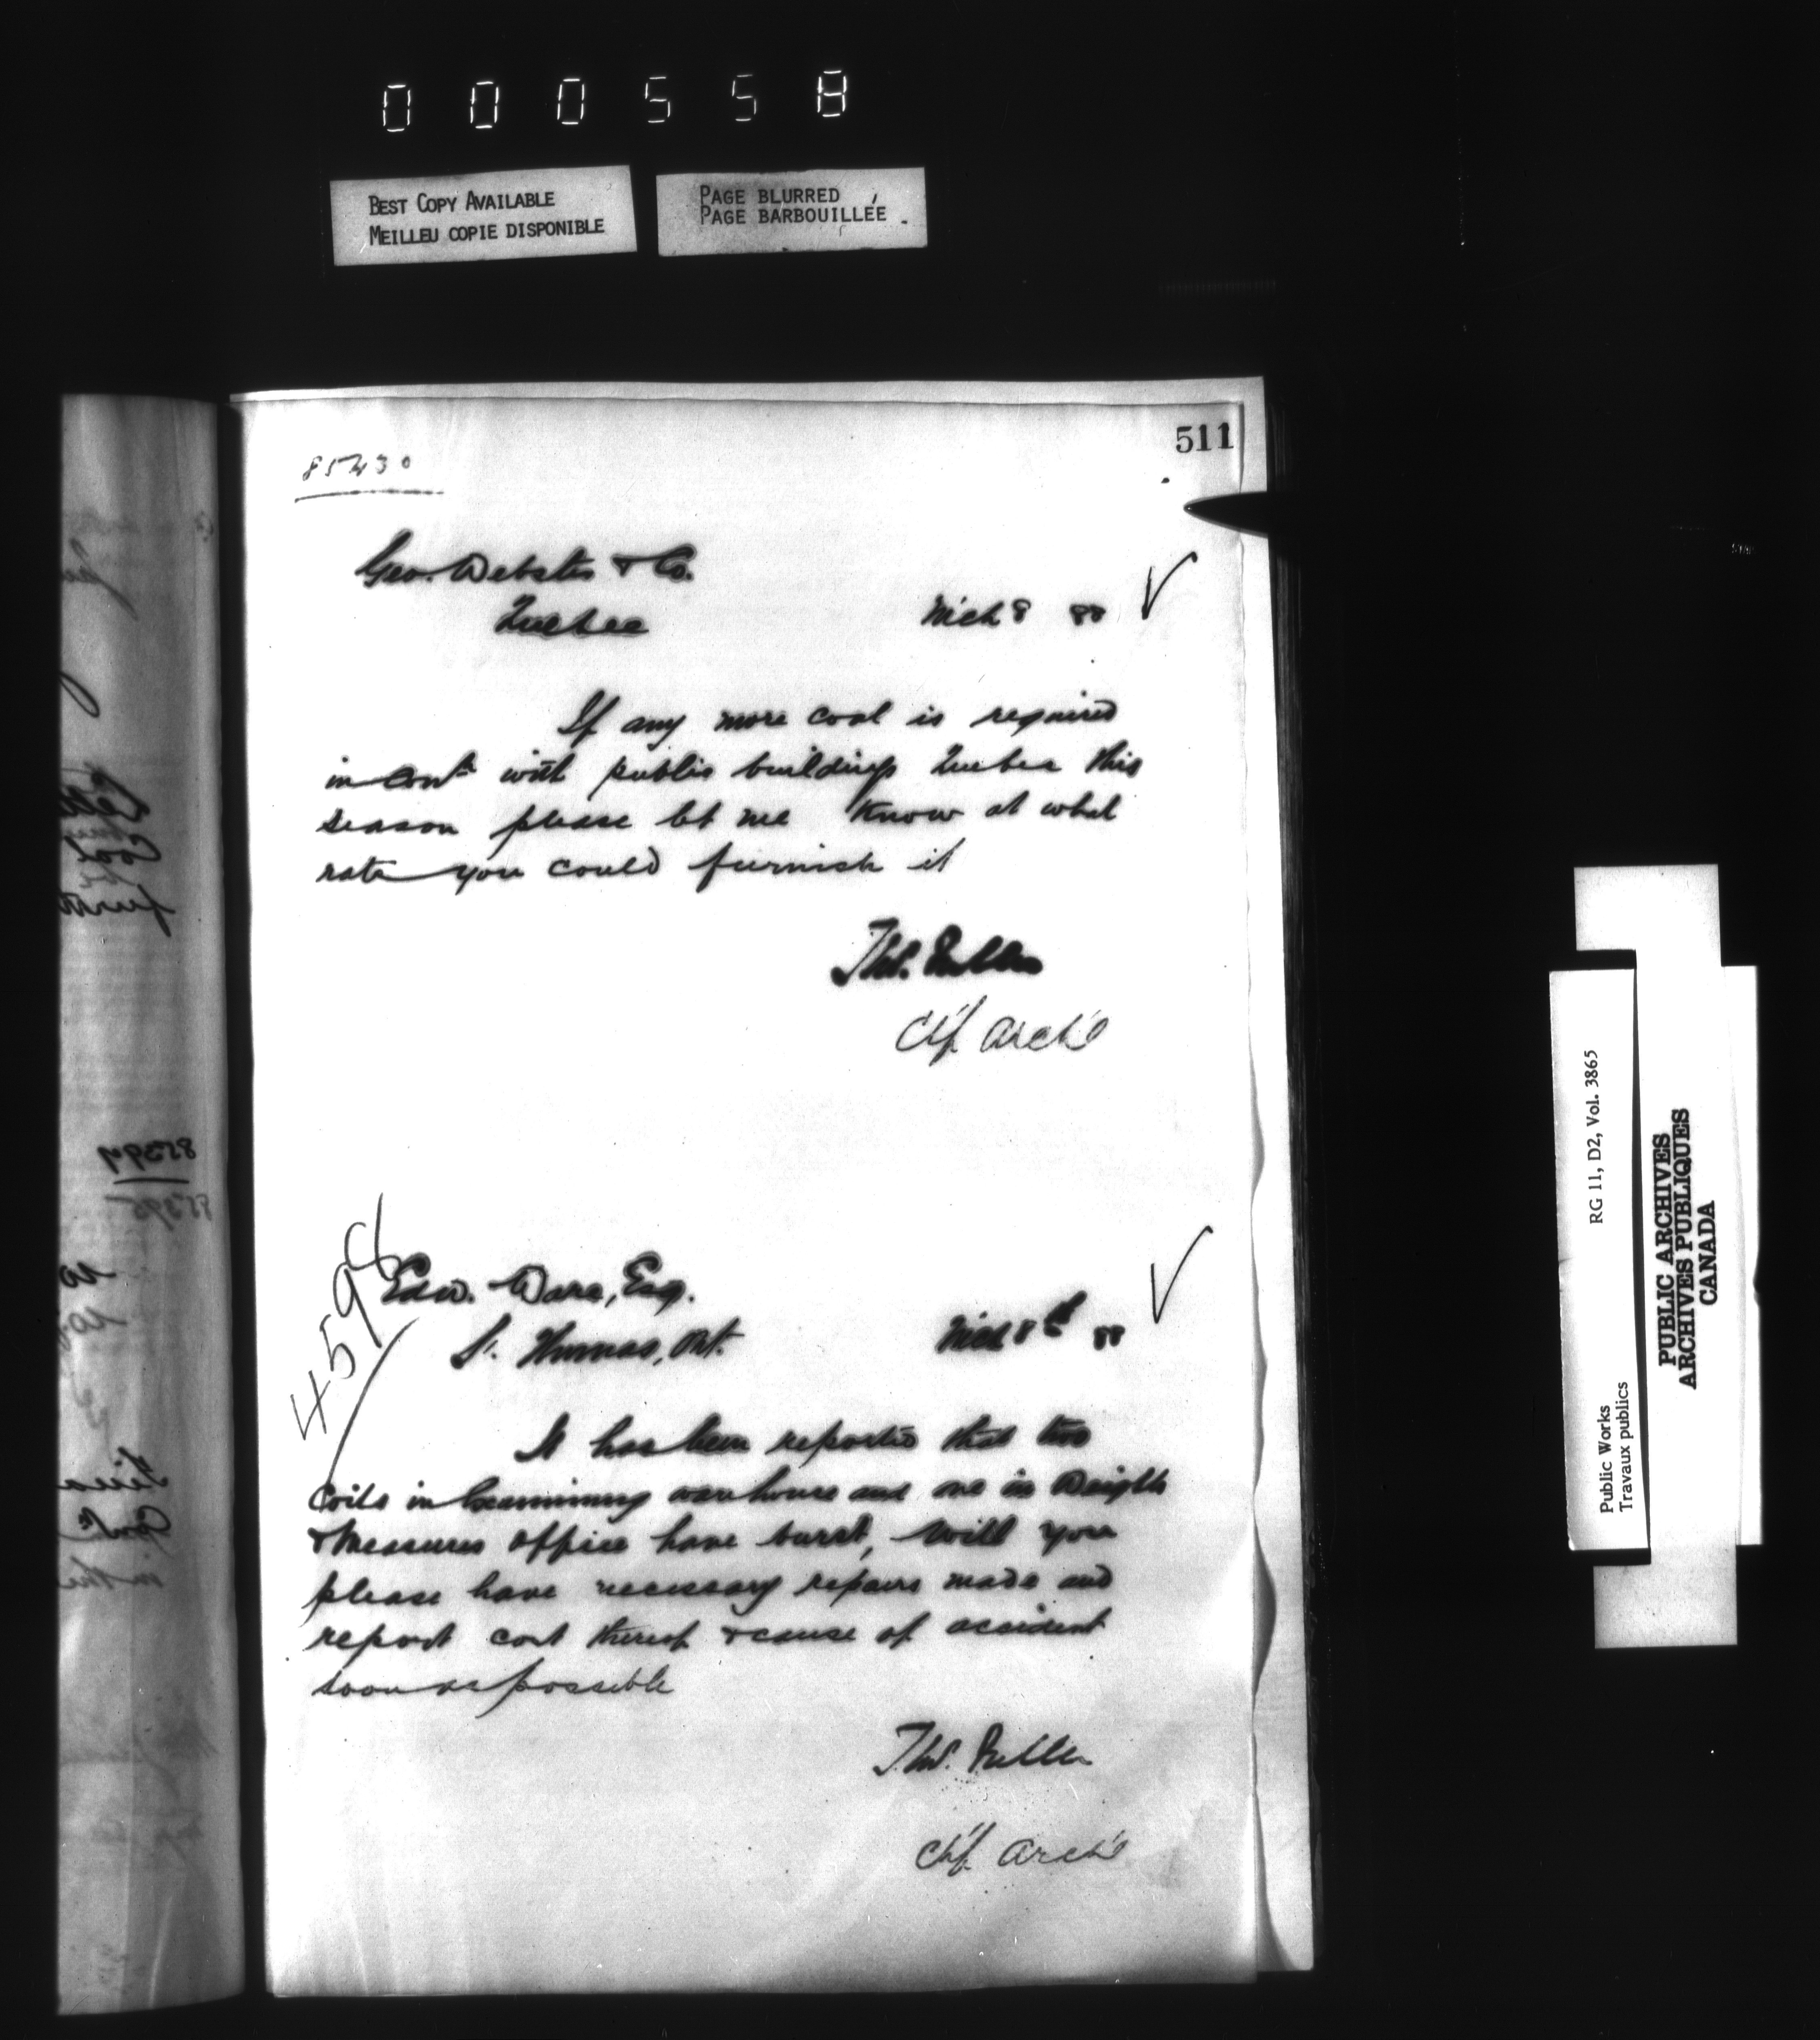 000558
BEST COPY AVAILABLE
MEILLEU COPIE DISPONIBLE
PAGE BLURRED
PAGE BARBOUILLÉE
511
85430
Geo. Webster & Co.
Quebec
Mch 8 88
If any more coal is required
in Con'n with public buildings Quebec this
season please let me know at what
rate you could furnish it
Thos. Fuller
Ch'f. Arch't
4596
Edw. Ware, Esq.
St. Thomas, Ont.
Mch 8th 88
It has been reported that two
Coils in Examining warehouse and one in Weights
& Measures Office have burst, Will you
please have necessary repairs made and
report cost thereof & cause of accident
soon as possible
Thos. Fuller
Ch'f. Arch't
RG 11, D2, Vol. 3865
Public Works
Travaux publics
PUBLIC ARCHIVES
ARCHIVES PUBLIQUES
CANADA